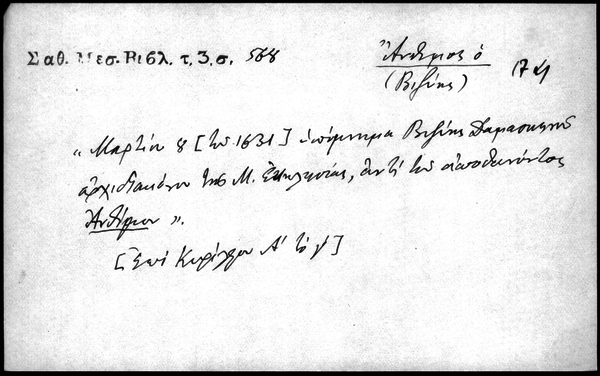 Σαθ. Μεσ. Βιβλ. τ. 3, σ. 568
Ἄνθιμος ὁ
(Βιζύης)
« Μαρτίου 8 [τοῦ 1631] ὑπόμνημα Βιζύης Δαμασκηνοῦ
ἀρχιδιακόνου τῆς Μ. Ἐκκλησίας, ἀντὶ τοῦ ἀποθανόντος
Ἀνθίμου ».
[Ἐπὶ Κυρίλλου Α' τὸ γ']